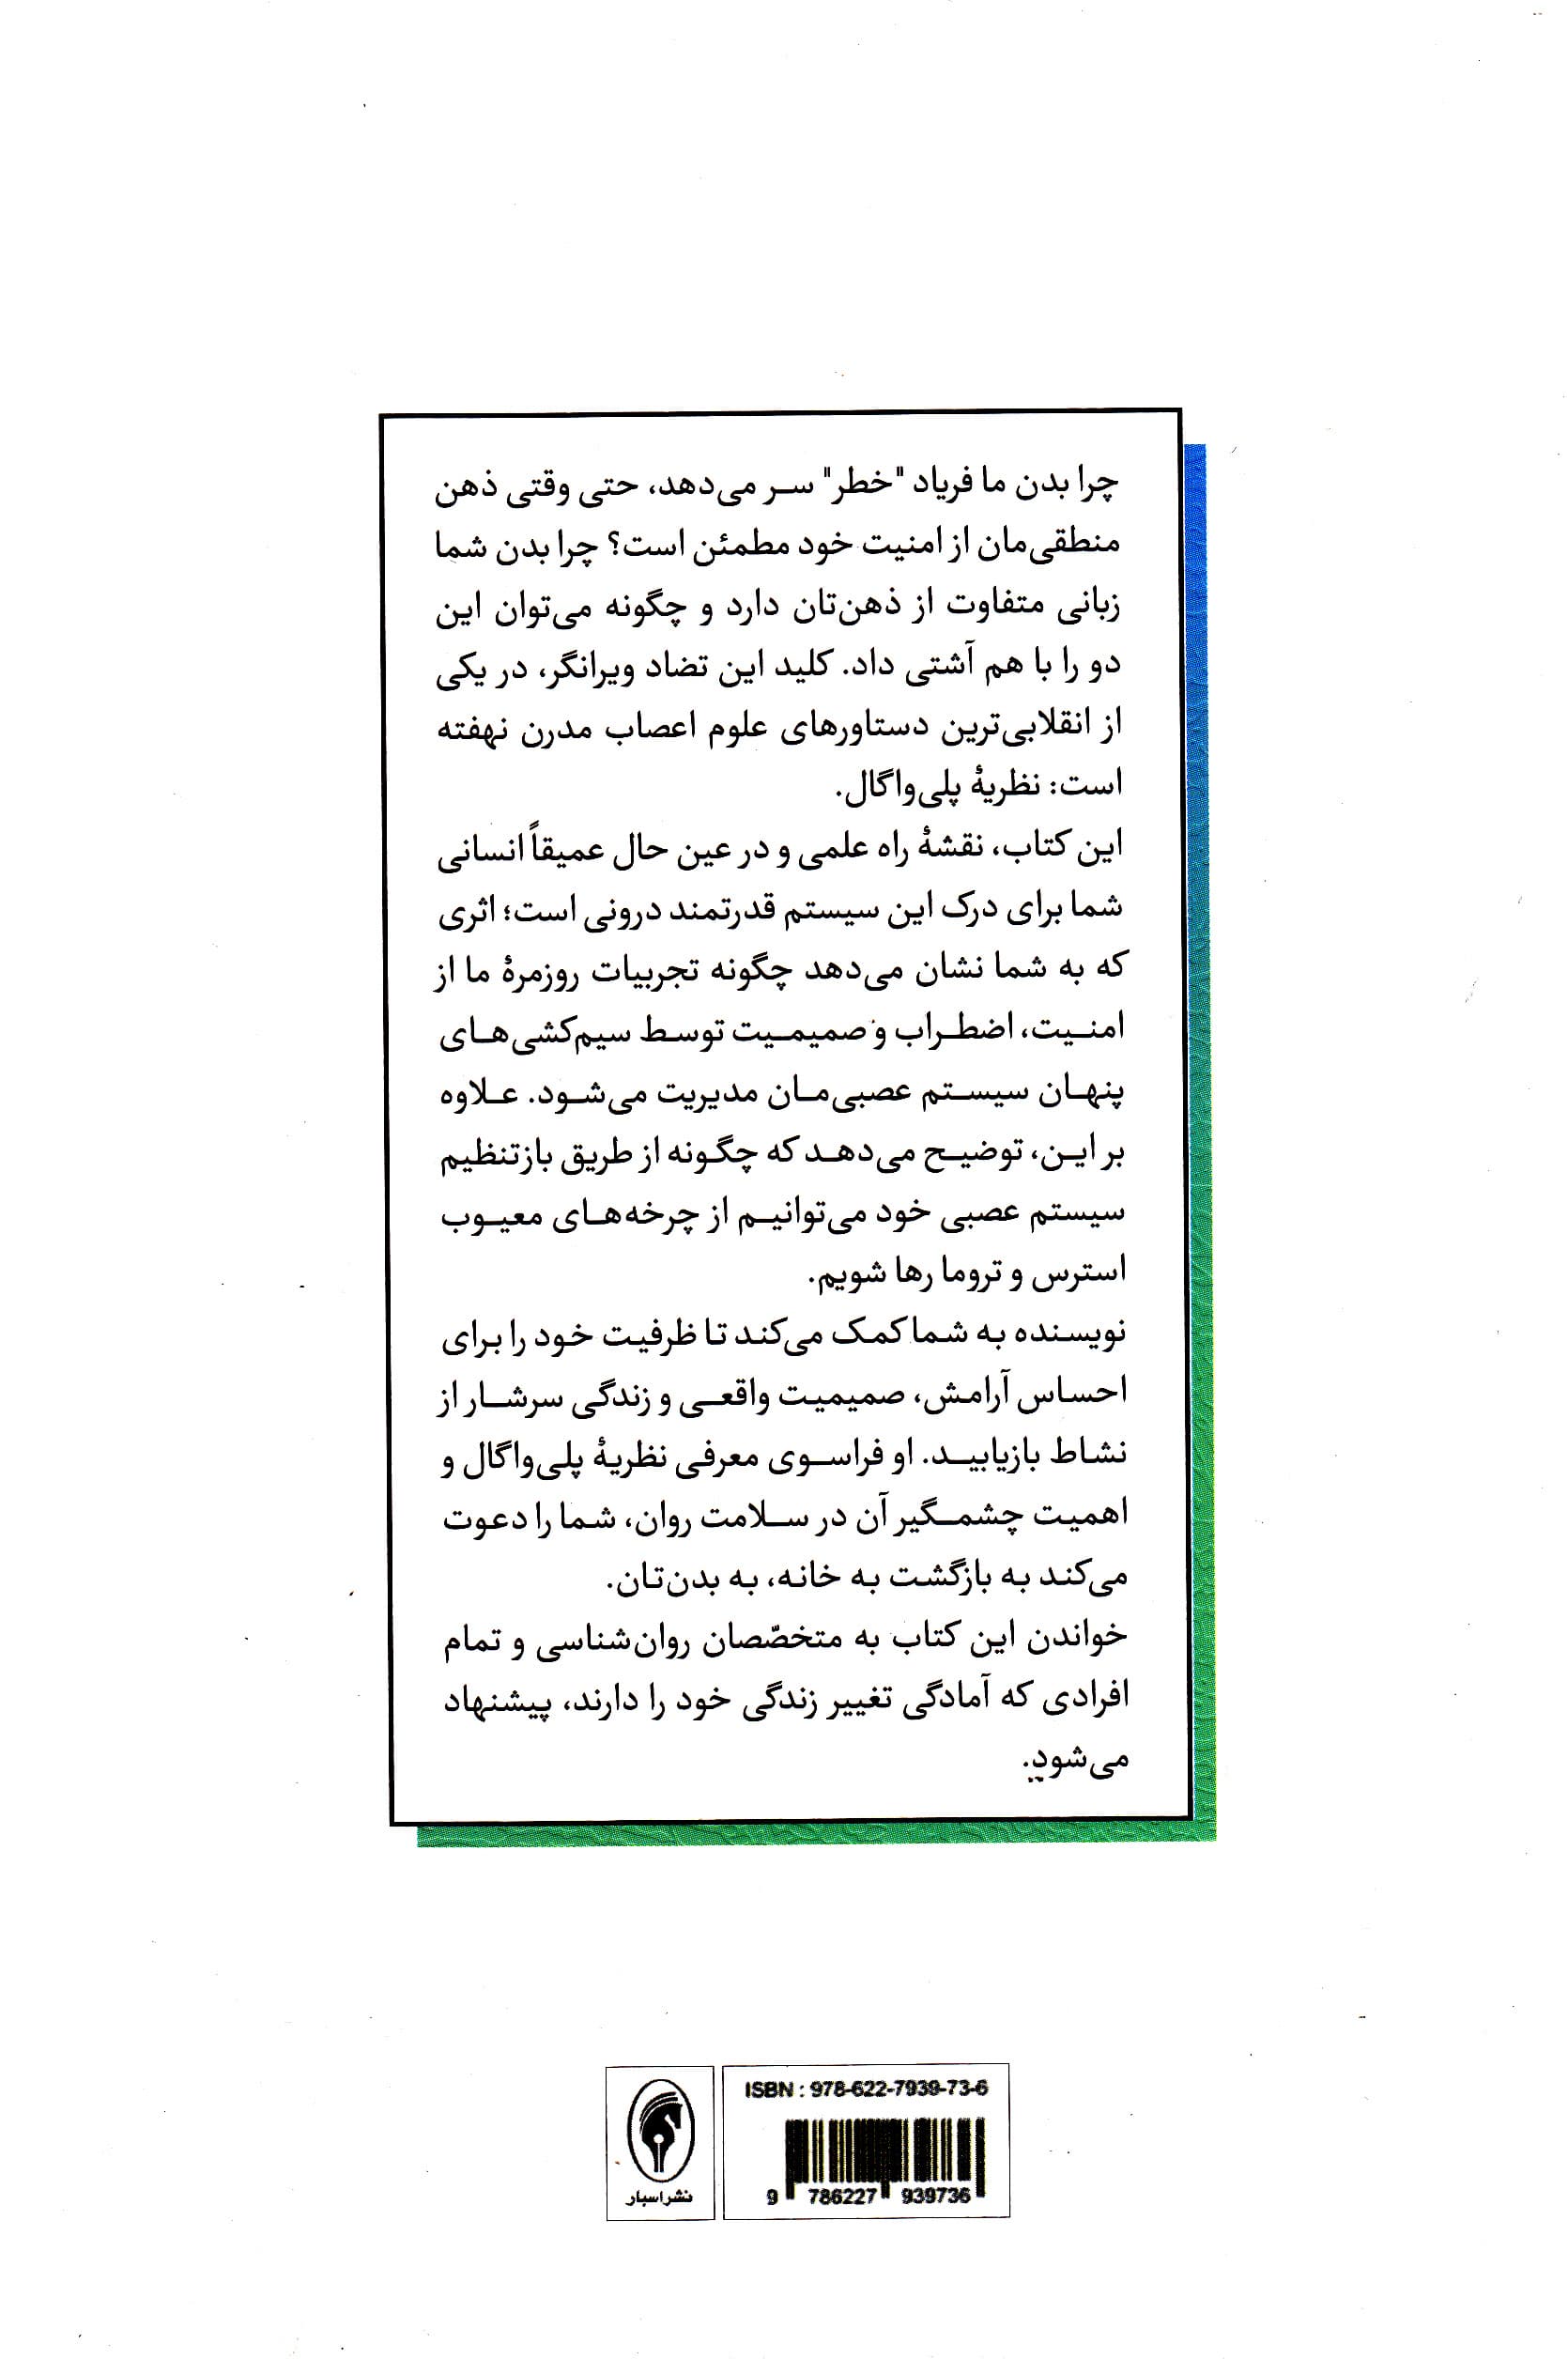 چرا بدن ما فریاد "خطر" سر می‌دهد، حتی وقتی ذهن
منطقی‌مان از امنیت خود مطمئن است؟ چرا بدن شما
زبانی متفاوت از ذهن‌تان دارد و چگونه می‌توان این
دو را با هم آشتی داد. کلید این تضاد ویرانگر، در یکی
از انقلابی‌ترین دستاورهای علوم اعصاب مدرن نهفته
است: نظریهٔ پلی‌واگال.
این کتاب، نقشهٔ راه علمی و در عین حال عمیقاً انسانی
شما برای درک این سیستم قدرتمند درونی است؛ اثری
که به شما نشان می‌دهد چگونه تجربیات روزمرهٔ ما از
امنیت، اضطراب و صمیمیت توسط سیم‌کشی‌های
پنهان سیستم عصبی‌مان مدیریت می‌شود. علاوه
بر این، توضیح می‌دهد که چگونه از طریق بازتنظیم
سیستم عصبی خود می‌توانیم از چرخه‌های معیوب
استرس و تروما رها شویم.
نویسنده به شما کمک می‌کند تا ظرفیت خود را برای
احساس آرامش، صمیمیت واقعی و زندگی سرشار از
نشاط بازیابید. او فراسوی معرفی نظریهٔ پلی‌واگال و
اهمیت چشمگیر آن در سلامت روان، شما را دعوت
می‌کند به بازگشت به خانه، به بدن‌تان.
خواندن این کتاب به متخصّصان روان‌شناسی و تمام
افرادی که آمادگی تغییر زندگی خود را دارند، پیشنهاد
می‌شود.
ISBN : 978-622-7939-73-6
9 786227 939736
نشر اسبار